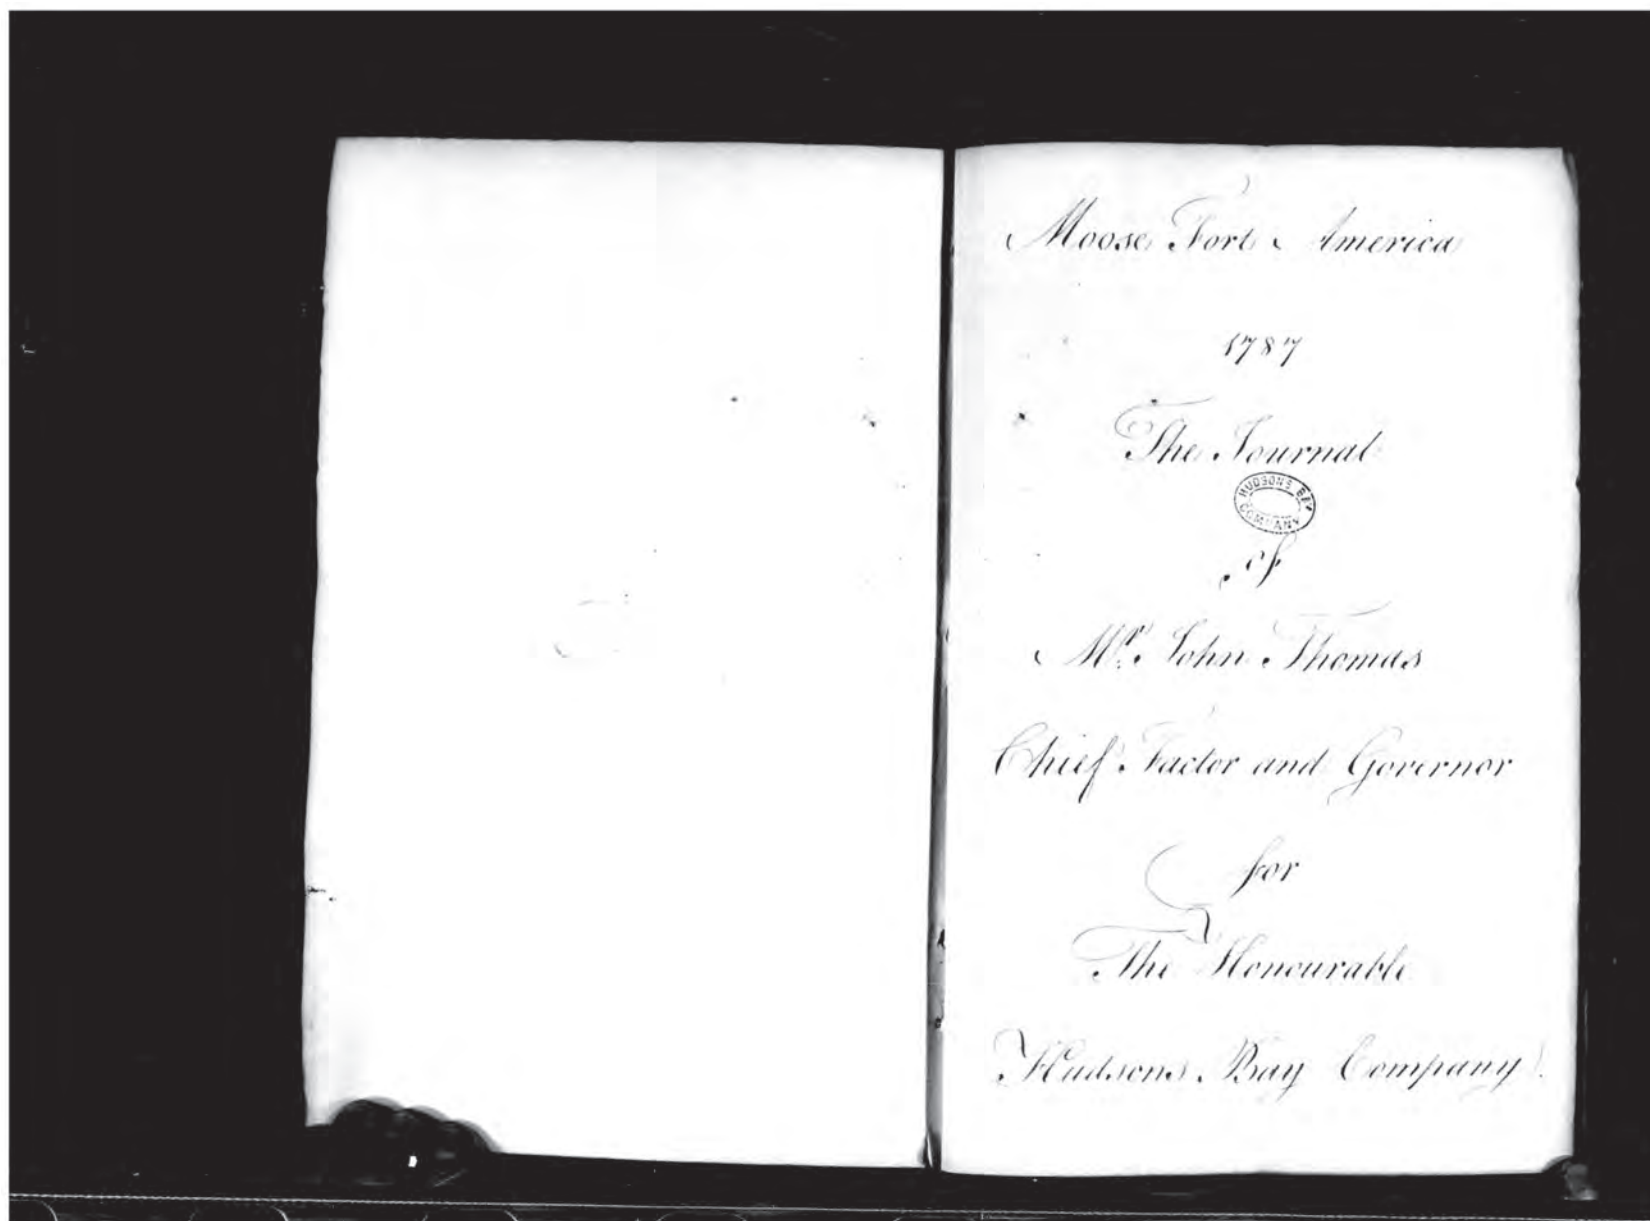 Moose Fort America
1787
The Journal
HUDSON'S BAY
COMPANY
of
Mr. John Thomas
Chief Factor and Governor
for
The Honourable
Hudsons Bay Company